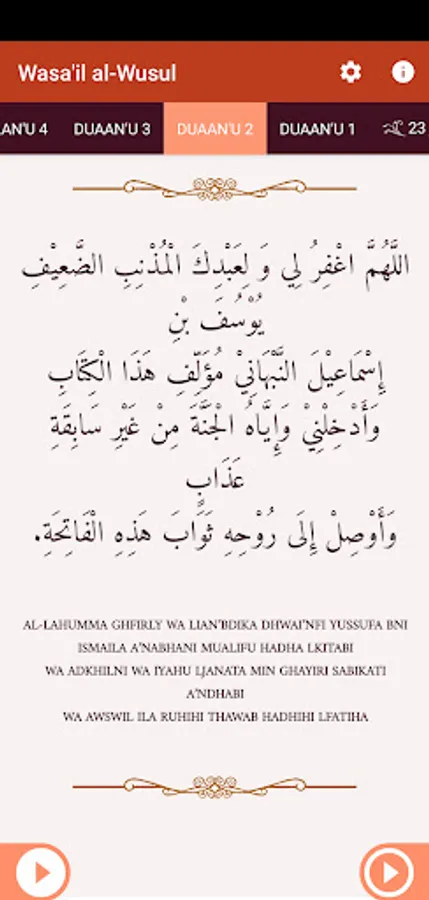 Wasa'il al-Wusul
AN'U 4 DUAAN'U 3 DUAAN'U 2 DUAAN'U 1 23
اللَّهُمَّ اغْفِرُ لِي وَ لِعَبْدِكَ الْمُذْنِبِ الضَّعِيْفِ
يُوْسُفَ بْنِ
إِسْمَاعِيْلَ النَّبْهَانِيْ مُؤَلِّفِ هَذَا الْكِتَابِ
وَأَدْخِلْنِيْ وَإِيَّاهُ الْجَنَّةَ مِنْ غَيْرِ سَابِقَةِ
عَذَابٍ
وَأَوْصِلْ إِلَى رُوْحِهِ ثَوَابَ هَذِهِ الْفَاتِحَةِ.
AL-LAHUMMA GHFIRLY WA LIAN'BDIKA DHWAI'NFI YUSSUFA BNI
ISMAILA A'NABHANI MUALIFU HADHA LKITABI
WA ADKHILNI WA IYAHU LJANATA MIN GHAYIRI SABIKATI
A'NDHABI
WA AWSWIL ILA RUHIHI THAWAB HADHIHI LFATIHA